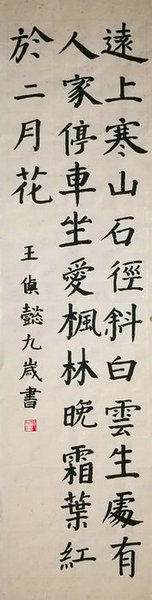 遠上寒山石徑斜白雲生處有
人家停車坐愛楓林晚霜葉紅
於二月花
王偵懿九歲書